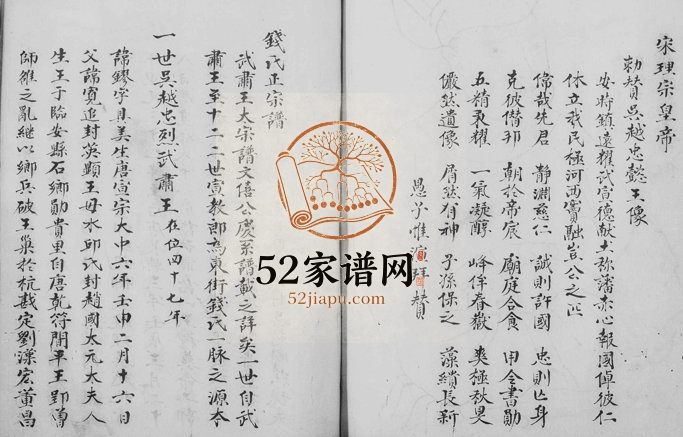 宋理宗皇帝
勅賛吳越忠懿王像
安時鎮遠耀武宣德献土称藩赤心報國倬彼仁
休立我民極河西竇融豈公之匹
偉哉先君 静淵慈仁 誠則許國 忠則亡身
克彼僭邦 朝於帝宸 廟庭合食 甲令書勛
五精乗耀 一氣凝醇 峰侔眷歡 爽極秋旻
儼然遺像 屑然有神 子孫保之 藻繢長新
愚子惟演拜賛
錢氏正宗譜
武肅王大宗譜文僖公慶系譜載之詳矣一世自武
肅王至十二世宣教郎為東街錢氏一脉之源本
一世吳越忠烈武肅王 在位四十七年
諱鏐字具美生唐宣宗大中六年壬申二月十六日
父諱寬追封英顯王母水邱氏封趙國太元太夫人
生王于臨安縣石鄉勛貴里自唐乾符間平王郢曽
師雄之亂継以鄉兵破王巢於杭戡定劉漢宏董昌
52家谱网
52jiapu.com